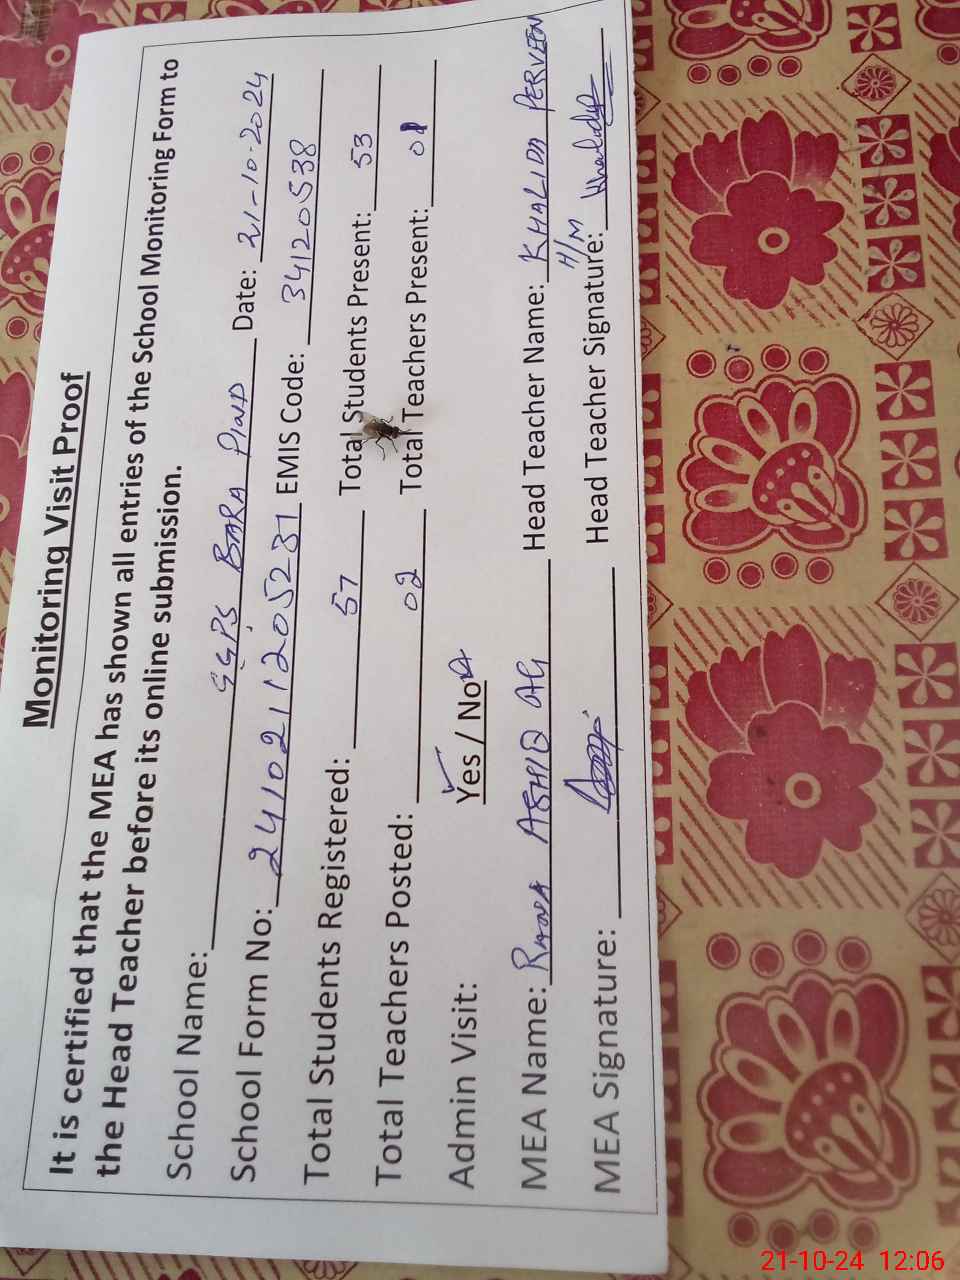 Monitoring Visit Proof
It is certified that the MEA has shown all entries of the School Monitoring Form to
the Head Teacher before its online submission.
School Name: GGPS BARA PIND Date: 21-10-2024
School Form No: 2410211205231 EMIS Code: 34120538
Total Students Registered: 57 Total Students Present: 53
Total Teachers Posted: 02 Total Teachers Present: 01
Admin Visit: Yes / No
MEA Name: RANA ASHIQ ALI Head Teacher Name: KHALIDA PERVEEN
H/M
MEA Signature: Head Teacher Signature: Khalida
21-10-24 12:06